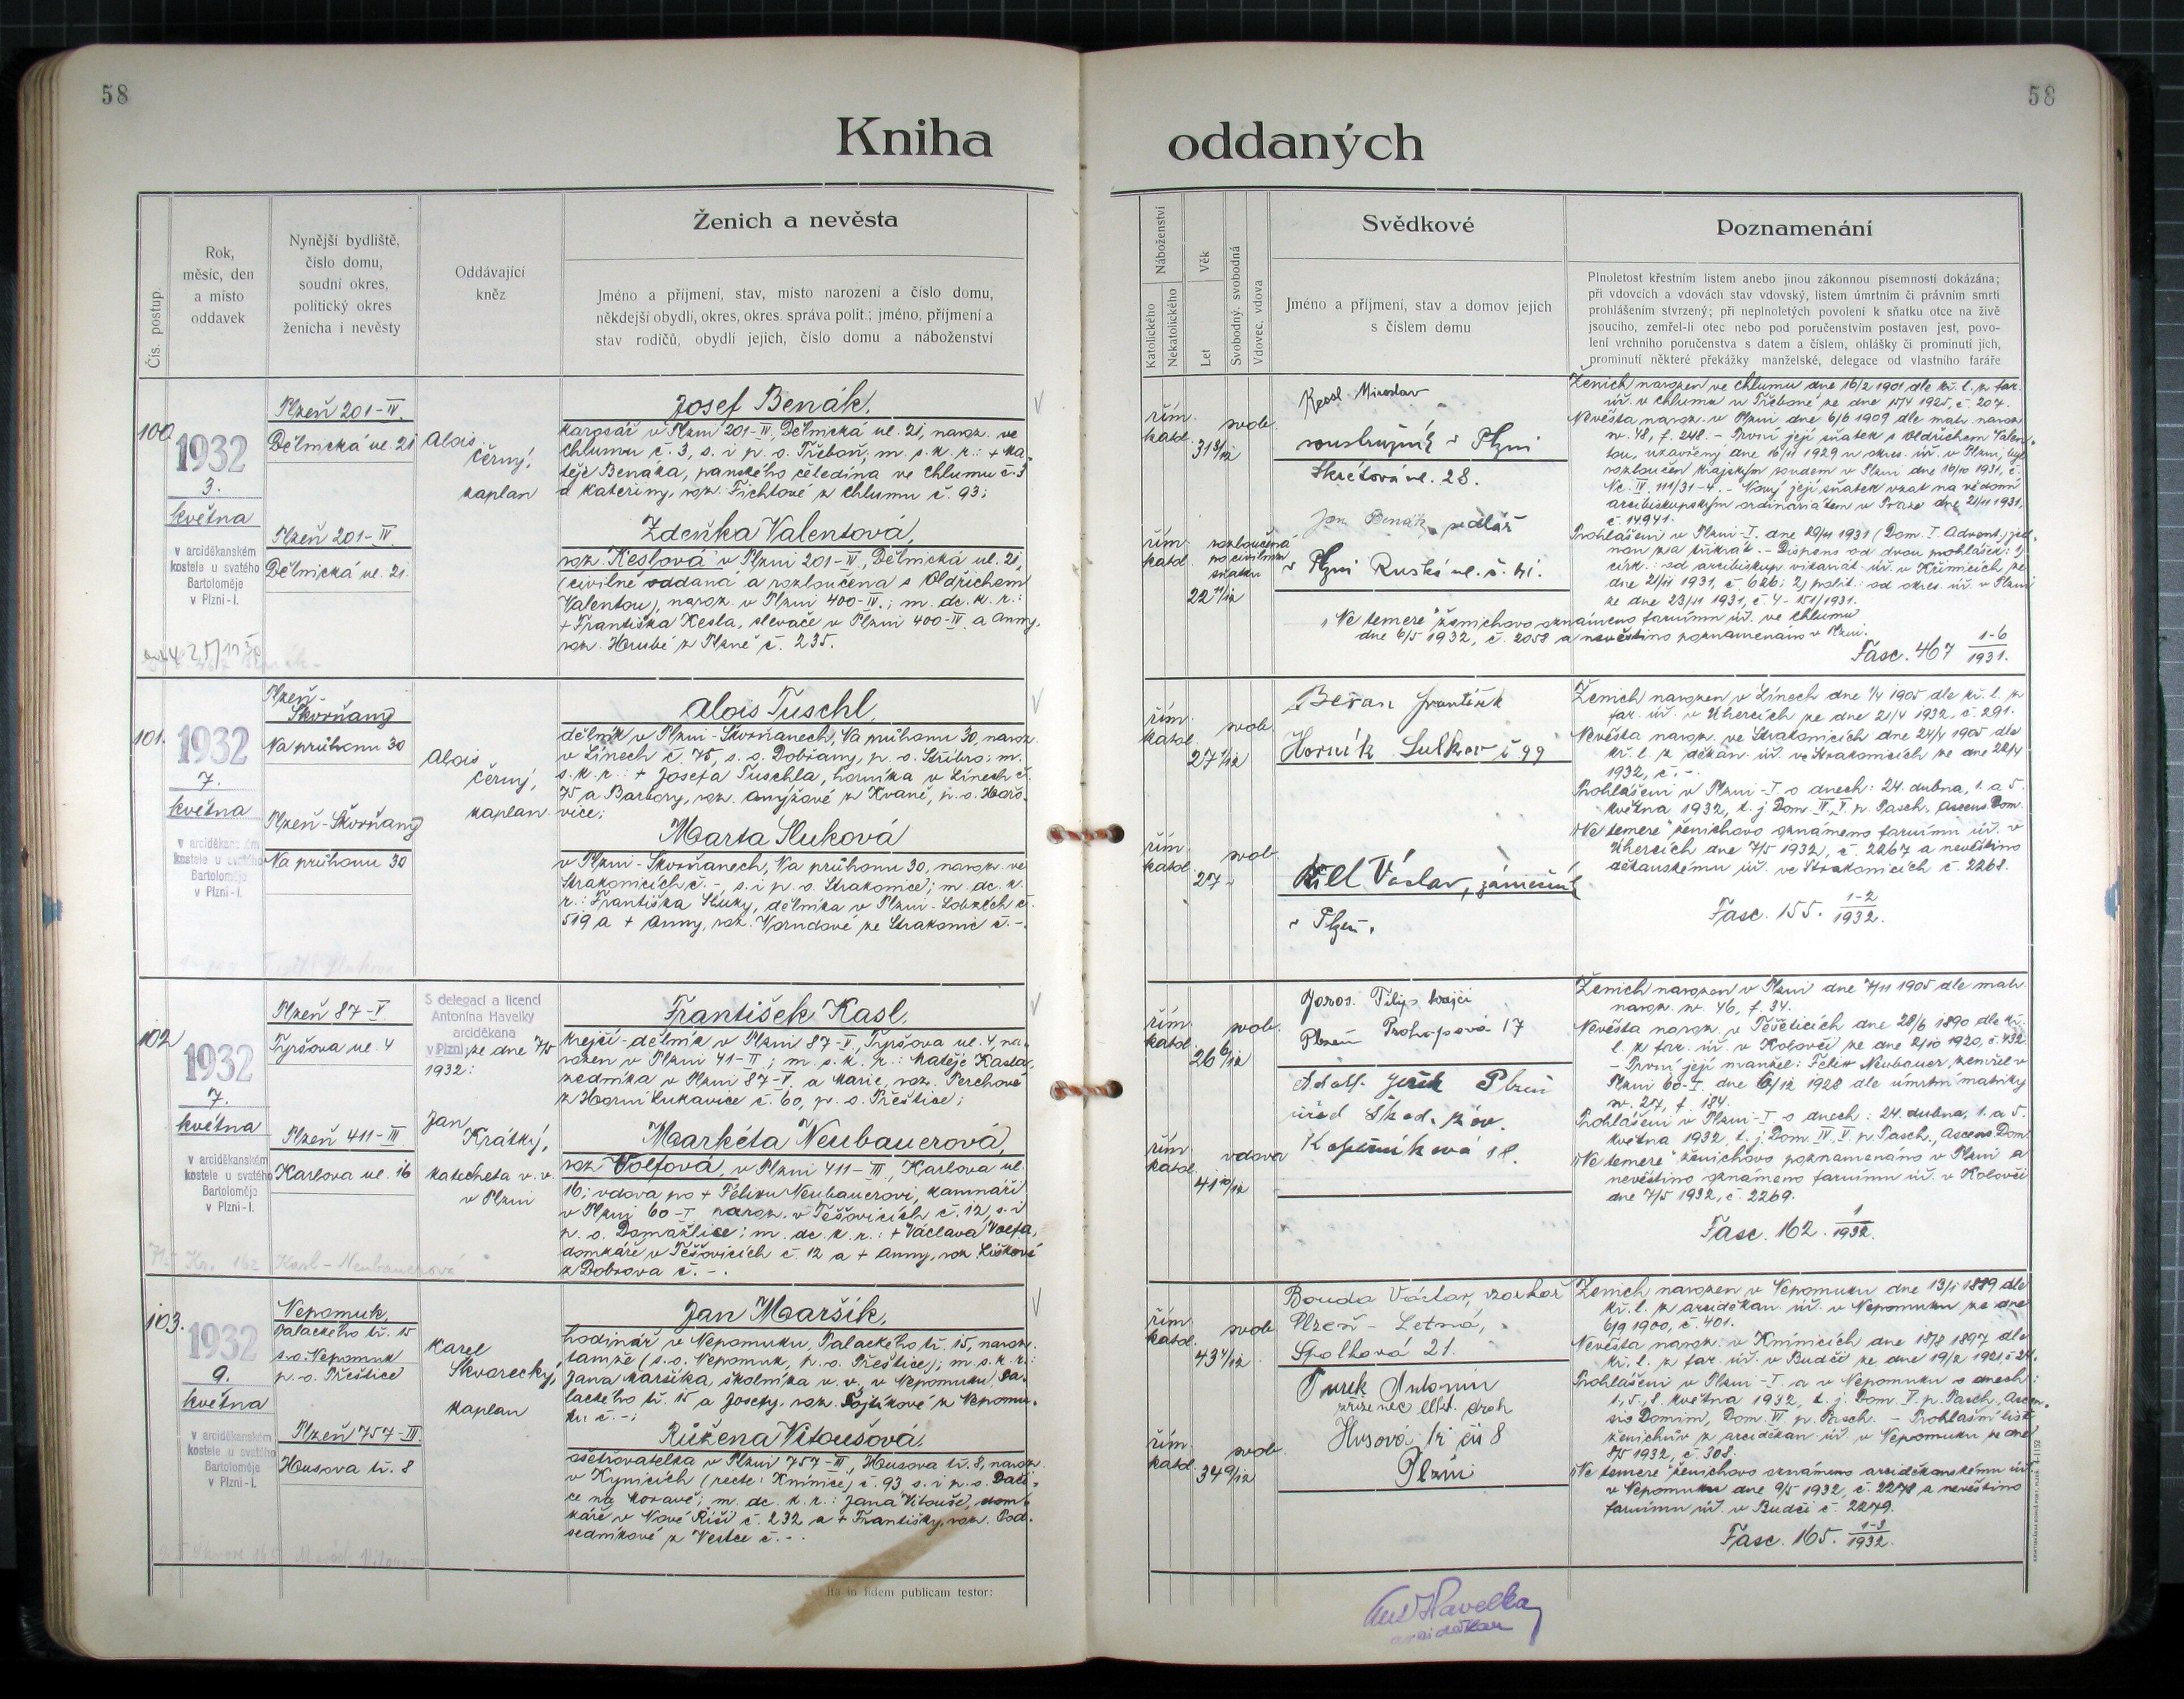 58
58
Kniha oddaných
Čís. postup.
Rok,
měsíc, den
a místo
oddavek
Nynější bydliště,
číslo domu,
soudní okres,
politický okres
ženicha i nevěsty
Oddávající
kněz
Ženich a nevěsta
Jméno a příjmení, stav, místo narození a číslo domu,
někdejší obydlí, okres, okres. správa polit.; jméno, příjmení a
stav rodičů, obydlí jejich, číslo domu a náboženství
Náboženství
Katolického
Nekatolického
Věk
Let
Svobodný, svobodná
Vdovec, vdova
Svědkové
Jméno a příjmení, stav a domov jejich
s číslem domu
Poznamenání
Plnoletost křestním listem anebo jinou zákonnou písemností dokázána;
při vdovcích a vdovách stav vdovský, listem úmrtním či právním smrti
prohlášením stvrzený; při neplnoletých povolení k sňatku otce na živě
jsoucího, zemřel-li otec nebo pod poručenstvím postaven jest, povo-
lení vrchního poručenstva s datem a číslem, ohlášky či prominutí jich,
prominutí některé překážky manželské, delegace od vlastního faráře
100
1932
3.
května
v arciděkanském
kostele u svatého
Bartoloměje
v Plzni-I.
Plzeň 201-IV.
Dělnická ul. 21
Plzeň 201-IV.
Dělnická ul. 21.
Alois
Černý,
kaplan
Josef Benák,
v Plzni 201-IV, Dělnická ul. 21, naroz. ve
Chlumu č. 3, s. i p. o. Třeboň, m. s. k. r.: + Ma-
těje Benáka, panského čeledína ve Chlumu č. 3
a Kateřiny, roz. Fichtové z Chlumu č. 93;
Zdeňka Valentová,
roz. Keslová v Plzni 201-IV, Dělnická ul. 21,
(civilně oddaná a rozloučena s Oldřichem
Valentou), naroz. v Plzni 400-IV.; m. dc. k. r.:
+ Františka Kesla, slevače v Plzni 400-IV. a Anny,
roz. Hrubé z Plzně č. 235.
řím.
katol.
31 3/12
svob.
řím.
katol.
22 11/12
rozloučená
po civilním
sňatku
Miroslav
soustružník v Plzni
Škrétova ul. 28.
Jan Benák, sedlář
v Plzni Ruská ul. č. 41.
Ženich narozen ve Chlumu dne 16/2 1901 dle kř. l. z far.
úř. v Chlumu u Třeboně ze dne 15/4 1925, č. 207.
Nevěsta naroz. v Plzni dne 6/6 1909 dle matr. naroz.
sv. 48, f. 248. - První její sňatek s Oldřichem Valen-
tou, uzavřený dne 16/11 1929 u okres. úř. v Plzni, byl
rozloučen krajským soudem v Plzni dne 16/10 1931, č.
Nc. IV. 111/31-4. - Nový její sňatek vzat na vědomí
arcibiskupským ordinariátem v Praze dne 21/11 1931,
č. 14941.
Prohlášeni v Plzni-I. dne 29/11 1931 (Dom. I. Advent.) jed-
nou za třikrát. - Dispens od dvou prohlášek: 1)
círk.: od arcibiskup. vikariát. úř. v Křimicích ze
dne 21/11 1931, č. 626; 2) polit.: od okres. úř. v Plzni
ze dne 23/11 1931, č. 4-151/1931.
„Ne temere" ženichovo oznámeno farnímu úř. ve Chlumu
dne 6/5 1932, č. 2058 a nevěstino poznamenáno v Plzni.
Fasc. 467 1-6/1931.
101.
1932
7.
května
v arciděkanském
kostele u svatého
Bartoloměje
v Plzni-I.
Plzeň-
Skvrňany
Na průhonu 30
Plzeň-Skvrňany
Na průhonu 30
Alois
Černý,
kaplan
Alois Tuschl,
dělník v Plzni-Skvrňanech, Na průhonu 30, naroz.
v Línech č. 75, s. o. Dobřany, p. o. Stříbro; m.
s. k. r.: + Josefa Tuschla, horníka v Línech č.
75 a Barbory, roz.
Marta Sluková
v Plzni-Skvrňanech, Na průhonu 30, naroz. ve
Strakonicích č. -, s. i p. o. Strakonice; m. dc. k.
r.: Františka Sluky, dělníka v Plzni-Lobzích č.
519 a + Anny, roz. Vorudové ze Strakonic č. -.
řím.
katol.
27 1/12
svob.
řím.
katol.
27 -
svob.
Beran František
Horník Sulkov č 99
Václav,
v Plzni.
Ženich narozen v Línech dne 1/4 1905 dle kř. l. z
far. úř. v Úhercích ze dne 21/4 1932, č. 291.
Nevěsta naroz. ve Strakonicích dne 24/4 1905 dle
kř. l. z děkan. úř. ve Strakonicích ze dne 22/4
1932, č. -.
Prohlášeni v Plzni-I. o dnech: 24. dubna, 1. a 5.
května 1932, t. j. Dom. IV, V. p. Pasch., Ascens. Dom.
„Ne temere" ženichovo oznámeno farnímu úř. v
Úhercích dne 7/5 1932, č. 2267 a nevěstino
děkanskému úř. ve Strakonicích č. 2268.
Fasc. 155. 1-2/1932.
102
1932
7.
května
v arciděkanském
kostele u svatého
Bartoloměje
v Plzni-I.
Plzeň 87-V
Tyršova ul. 4
Plzeň 411-III
Karlova ul. 16
S delegací a licencí
Antonína Havelky
arciděkana
v Plzni ze dne 7/5
1932:
Jan
Krátký,
katecheta v. v.
v Plzni
František Kasl,
krejčí-dělník v Plzni 87-V, Tyršova ul. 4, na-
rozen v Plzni 41-II; m. s. k. r.: Matěje Kasla,
zedníka v Plzni 87-V. a Marie, roz. Perchové
z Horní Lukavice č. 60, p. o. Přeštice;
Markéta Neubauerová,
roz. Volfová, v Plzni 411-III, Karlova ul.
16; vdova po + Felixu Neubauerovi, kamnáři
v Plzni 60-I, naroz. v Těšovicích č. 12, s. i
p. o. Domažlice; m. dc. k. r.: + Václava Volfa,
domkáře v Těšovicích č. 12 a + Anny, roz. Liškové
z Dobrova č. -.
řím.
katol.
26 6/12
svob.
řím.
katol.
41 10/12
vdova
Filip krejčí
Plzeň Prokopova 17
Adolf Plzeň
úřed. Škod. záv.
Koperníkova
Ženich narozen v Plzni dne 7/11 1905 dle matr.
naroz. sv. 46, f. 34.
Nevěsta naroz. v Těšeticích dne 28/6 1890 dle kř.
l. z far. úř. v Kolovči ze dne 2/10 1920, č. 432.
- První její manžel: Felix Neubauer, zemřel v
Plzni 60-I. dne 6/12 1928 dle úmrtní matriky
sv. 27, f. 184.
Prohlášeni v Plzni-I o dnech: 24. dubna, 1. a 5.
května 1932, t. j. Dom. IV. V. p. Pasch., Ascens. Dom.
„Ne temere" ženichovo poznamenáno v Plzni a
nevěstino oznámeno farnímu úř. v Kolovči
dne 7/5 1932, č. 2269.
Fasc. 162. 1/1932.
103.
1932
9.
května
v arciděkanském
kostele u svatého
Bartoloměje
v Plzni-I.
Nepomuk,
Palackého tř. 15
s. o. Nepomuk
p. o. Přeštice
Plzeň 757-III.
Husova tř. 8
Karel
Skvarecký,
kaplan
Jan Maršík,
hodinář v Nepomuku, Palackého tř. 15, naroz.
tamže (s. o. Nepomuk, p. o. Přeštice); m. s. k. r.:
Jana Maršíka, školníka v. v. v Nepomuku, Pa-
lackého tř. 15 a Josefy, roz. Šojtíkové z Nepomu-
ku č. -;
Růžena Vitoušová,
ošetřovatelka v Plzni 757-III, Husova tř. 8, naroz.
v Kynicích (recte: Knínice) č. 93 s. i p. o. Dači-
ce na Moravě; m. dc. k. r.: Jana Vitouše, dom-
káře v Nové Říši č. 232 a + Františky, roz. Pod-
sedníkové z Vestce č. -.
řím.
katol.
43 4/12
svob.
řím.
katol.
34 9/12
svob.
Bouda Václav,
Plzeň - Letná,
Spolková 21.
Turek Antonin
zřízenec drah
Husová tř čís 8
Plzni
Ženich narozen v Nepomuku dne 13/1 1889 dle
kř. l. z arciděkan. úř. v Nepomuku ze dne
6/9 1900, č. 401.
Nevěsta naroz. v Knínicích dne 18/8 1897 dle
kř. l. z far. úř. v Budči ze dne 19/2 1921, č. 24.
Prohlášeni v Plzni-I. a v Nepomuku o dnech:
1., 5., 8. května 1932, t. j. Dom. V. p. Pasch., Ascen-
sio Domini, Dom. VI. p. Pasch. - Prohlašní list
ženichův z arciděkan. úř. v Nepomuku ze dne
8/5 1932, č. 308.
„Ne temere" ženichovo oznámeno arciděkanskému úř.
v Nepomuku dne 9/5 1932, č. 2278 a nevěstino
farnímu úř. v Budči č. 2279.
Fasc. 165. 1-3/1932.
Ita in fidem publicam testor:
Ant Havelka
arciděkan